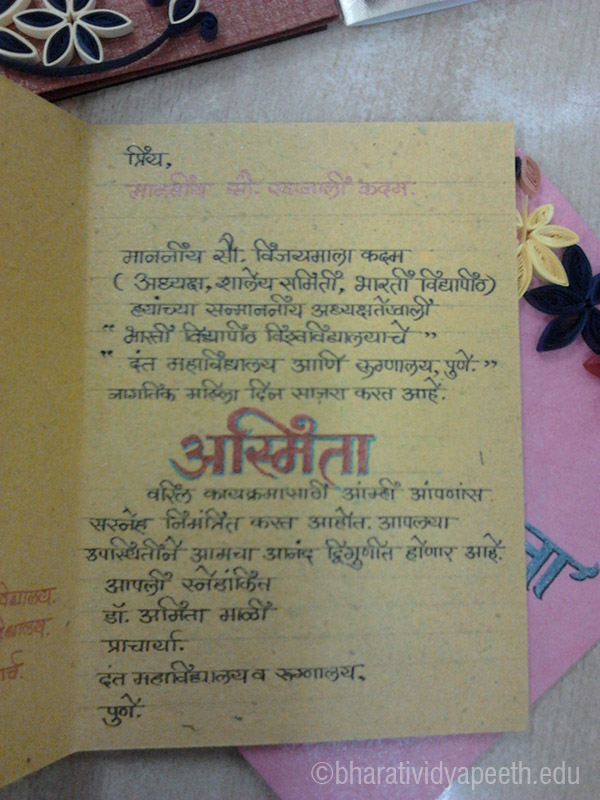 प्रिय,
माननीय सौ. स्वप्नाली कदम.
माननीय सौ. विजयमाला कदम
( अध्यक्ष, शालेय समिती, भारती विद्यापीठ)
ह्यांच्या सन्माननीय अध्यक्षतेखाली
" भारती विद्यापीठ विश्वविद्यालयाचे "
" दंत महाविद्यालय आणि रुग्णालय, पुणे. "
जागतिक महिला दिन साजरा करत आहे.
अस्मिता
वरिल कार्यक्रमासाठी आम्ही आपणांस
सस्नेह निमंत्रित करत आहोत. आपल्या
उपस्थितीने आमचा आनंद द्विगुणीत होणार आहे.
आपली स्नेहांकित
डॉ. अमिता माळी
प्राचार्या.
दंत महाविद्यालय व रुग्णालय,
पुणे.
©bharatividyapeeth.edu